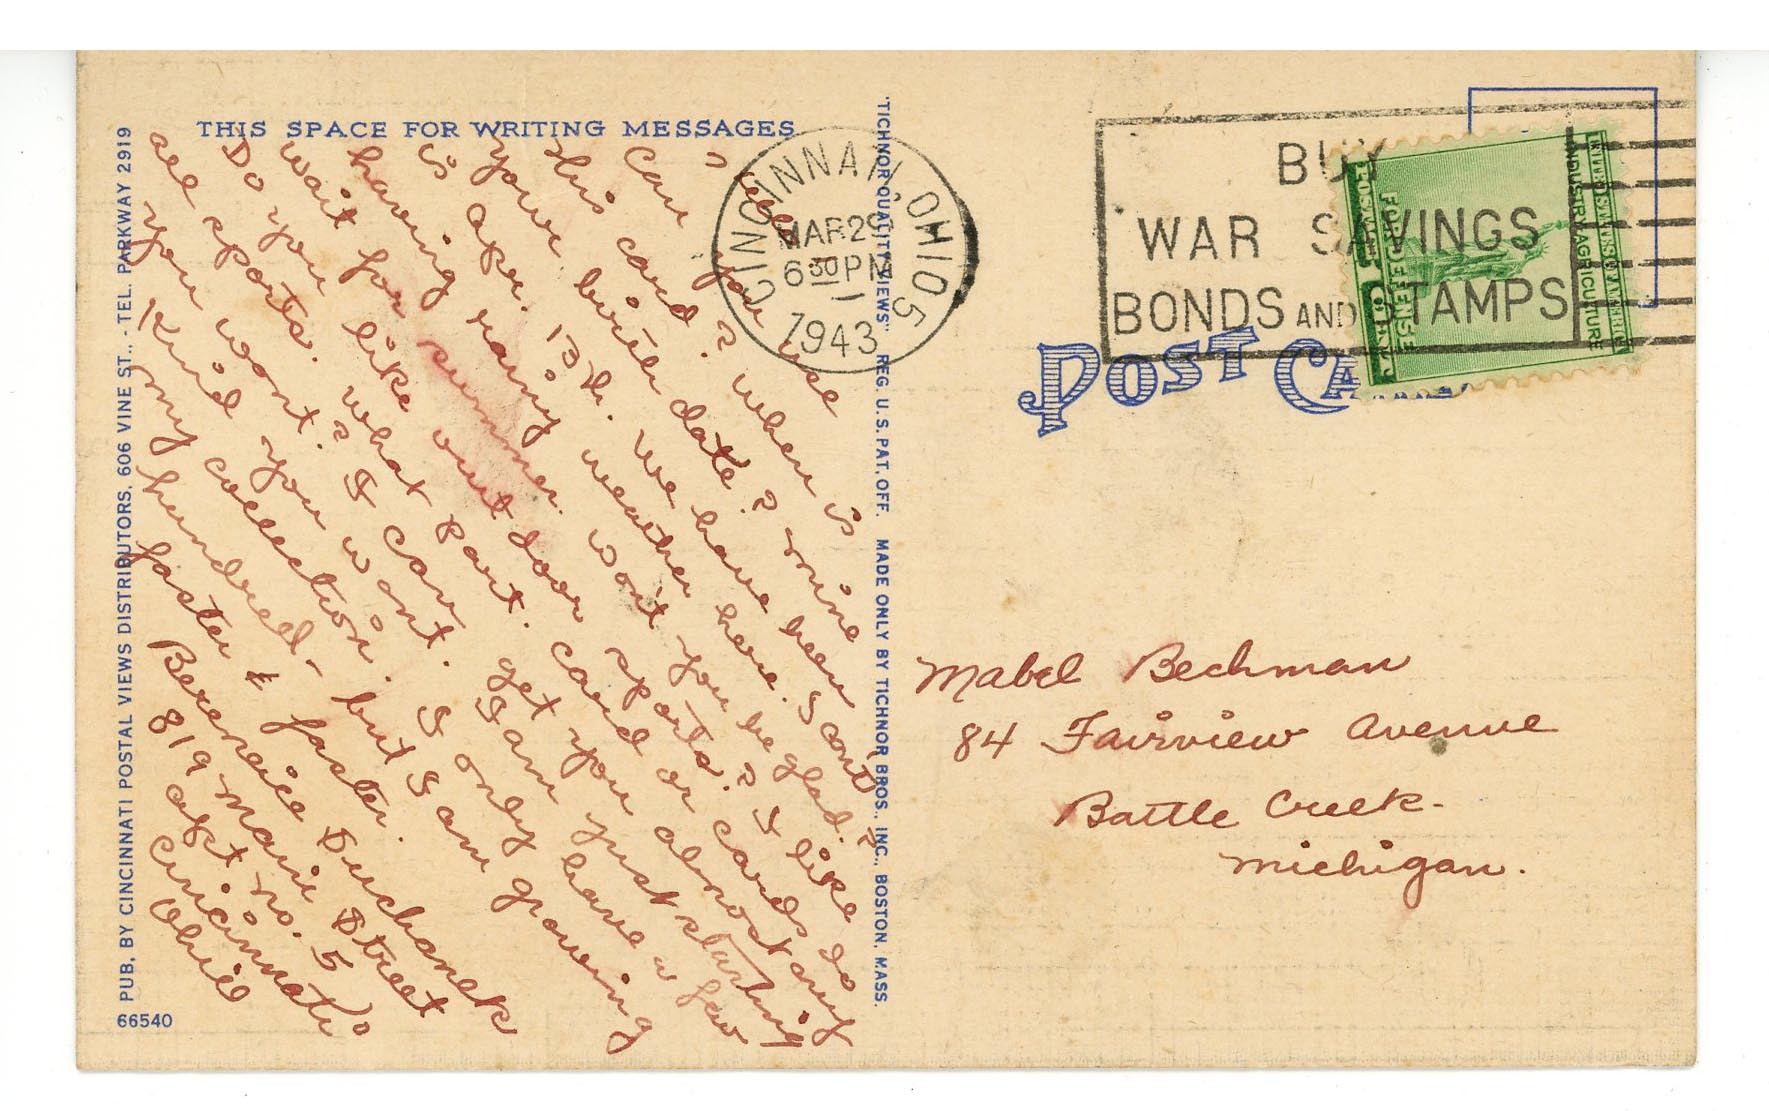 THIS SPACE FOR WRITING MESSAGES
Can you use
this card? when is
your birth date? mine
is apr. 13th. We have been
having rainy weather here. I cant
wait for summer. wont you be glad?
Do you like out door sports? I like
all sports. What part. card or cards do
you want? I can get you almost any
kind you want. I am just starting
my collection. I only have a few
hundred- but I am growing
faster & faster.
Berenice Suchanek
819 Marie Street
apt no. 5
Cincinnati
Ohio
PUB. BY CINCINNATI POSTAL VIEWS DISTRIBUTORS, 606 VINE ST., - TEL. PARKWAY 2919
66540
"TICHNOR QUALITY VIEWS" REG. U.S. PAT. OFF. MADE ONLY BY TICHNOR BROS., INC., BOSTON, MASS.
CINCINNATI, OHIO 5
MAR 29
6 30 PM
1943
BUY
WAR SAVINGS
BONDS AND STAMPS
INDUSTRY AGRICULTURE
FOR DEFENSE
POST CA
Mabel Bechman
84 Fairview Avenue
Battle Creek-
Michigan.